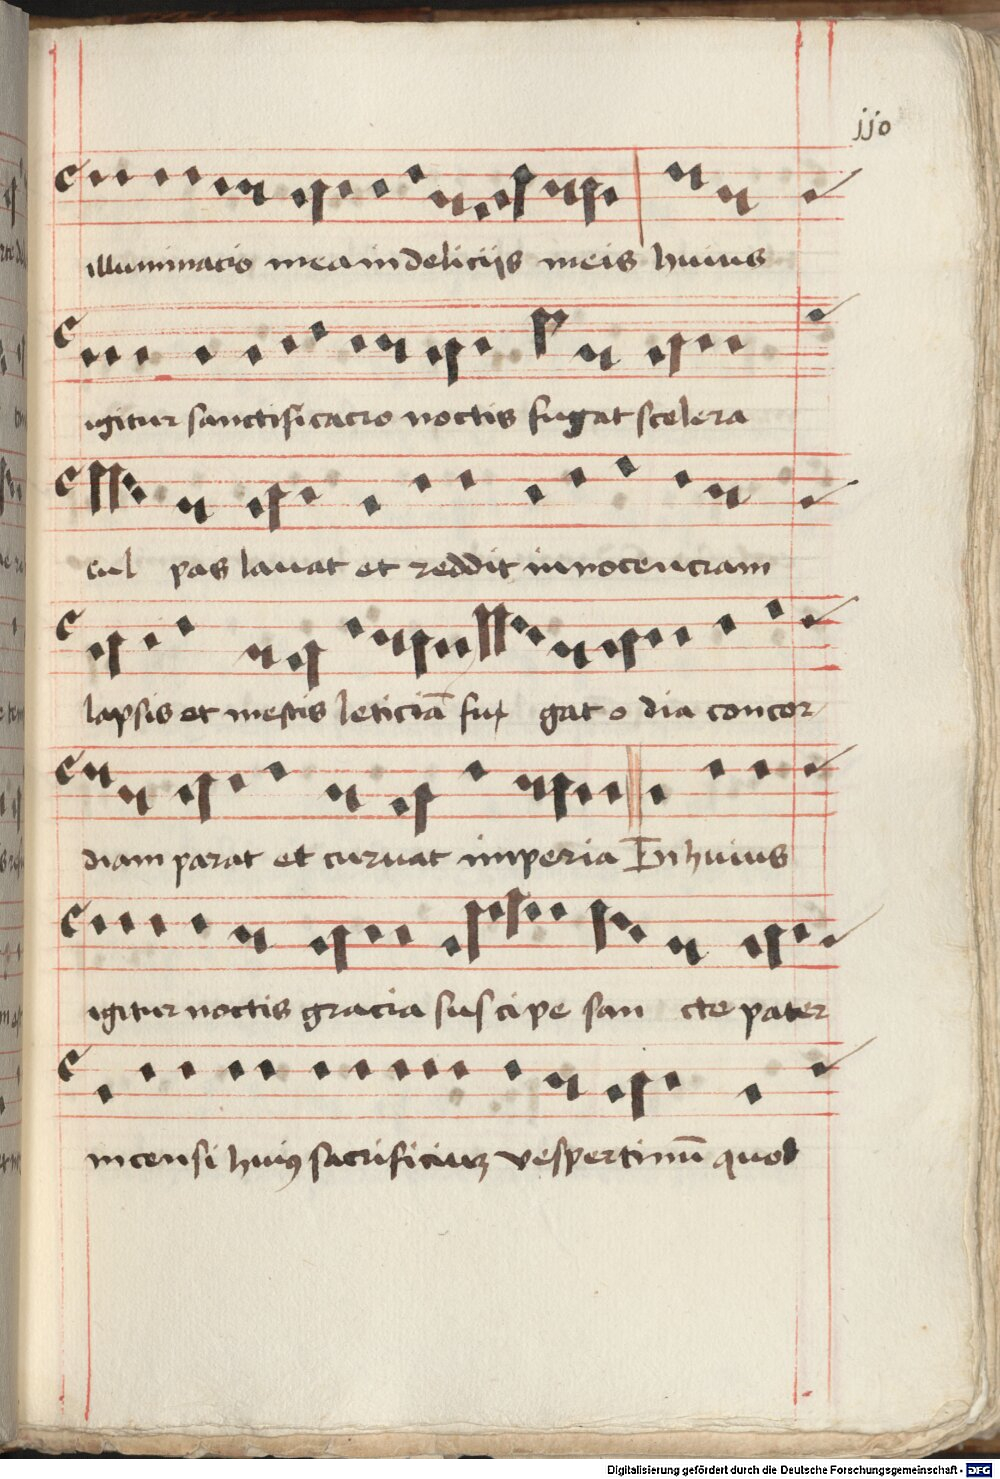 jj0
illuminacio mea in deliciis meis huius
igitur sanctificacio noctis fugat scelera
cul pas lauat et reddit innocenciam
lapsis et mestis leticiā fu gat odia concor
diam parat et curuat imperia In huius
igitur noctis gracia suscipe san cte pater
incensi huiꝰ sacrificiuꝫ vespertinū quod
Digitalisierung gefördert durch die Deutsche Forschungsgemeinschaft - DFG